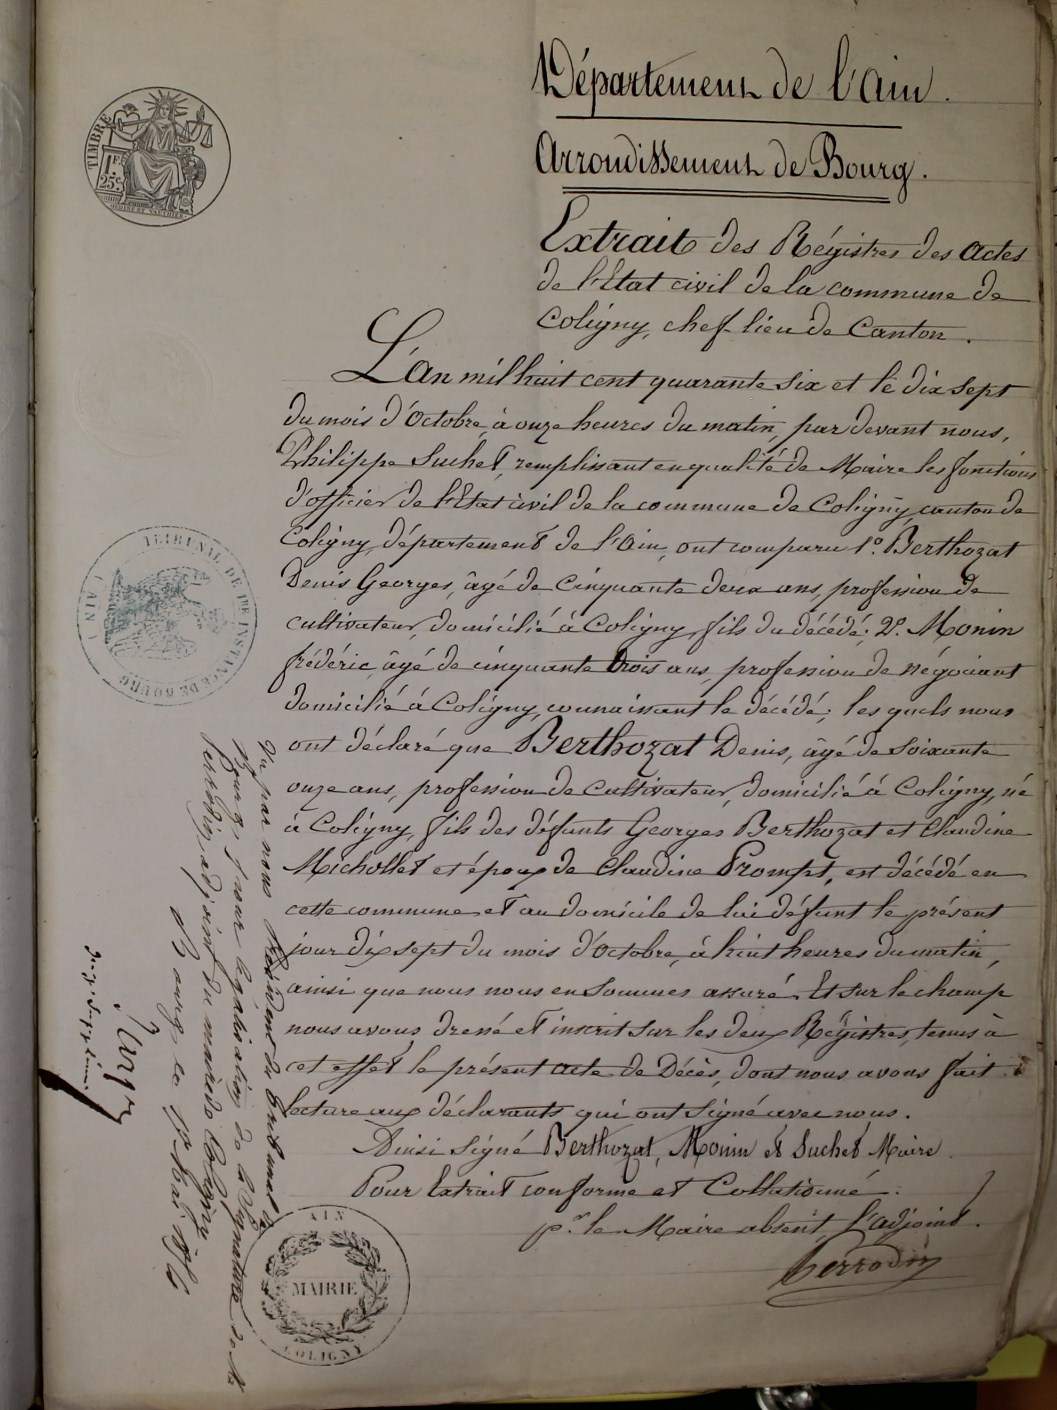 TIMBRE
1F.
25c.
Département de l'Ain.
Arrondissement de Bourg.
Extrait des Régistres des Actes
de l'Etat civil de la commune de
Coligny, chef-lieu de Canton.
L'an mil huit cent quarante six et le dix sept
du mois d'Octobre, à onze heures du matin, par devant nous,
Philippe Suchet, remplissant en qualité de Maire les fonctions
d'officier de l'Etat civil de la commune de Coligny, canton de
Coligny, département de l'Ain, ont comparu 1º. Berthozat
Denis Georges, âgé de Cinquante deux ans, profession de
cultivateur, domicilié à Coligny, fils du décédé; 2º. Monin
frédéric, âgé de cinquante trois ans, profession de négociant
domicilié à Coligny, connaissant le décédé; les quels nous
ont déclaré que Berthozat Denis, âgé de soixante
onze ans, profession de Cultivateur, domicilié à Coligny, né
à Coligny, fils des défunts Georges Berthozat et Claudine
Michollet et époux de Claudine Prompt, est décédé en
cette commune et au domicile de lui défunt le présent
jour dix sept du mois d'Octobre, à huit heures du matin,
ainsi que nous nous en sommes assuré. Et sur le champ
nous avons dressé et inscrit sur les deux Régistres, tenus à
cet effet le présent acte de Décès, dont nous avons fait
lecture aux déclarants qui ont signé avec nous.
Ainsi signé Berthozat, Monin et Suchet Maire
Pour Extrait conforme et Collationné.
pr. le Maire absent, l'adjoint.
Perrodin
TRIBUNAL DE 1RE INSTANCE DE BOURG
( AIN )
AIN
MAIRIE
COLIGNY
Vu par nous Président du tribunal de
Bourg, pour légalisation de la signature de Mr
Perrodin, adjoint du maire de Coligny
Bourg le
juge suppléant